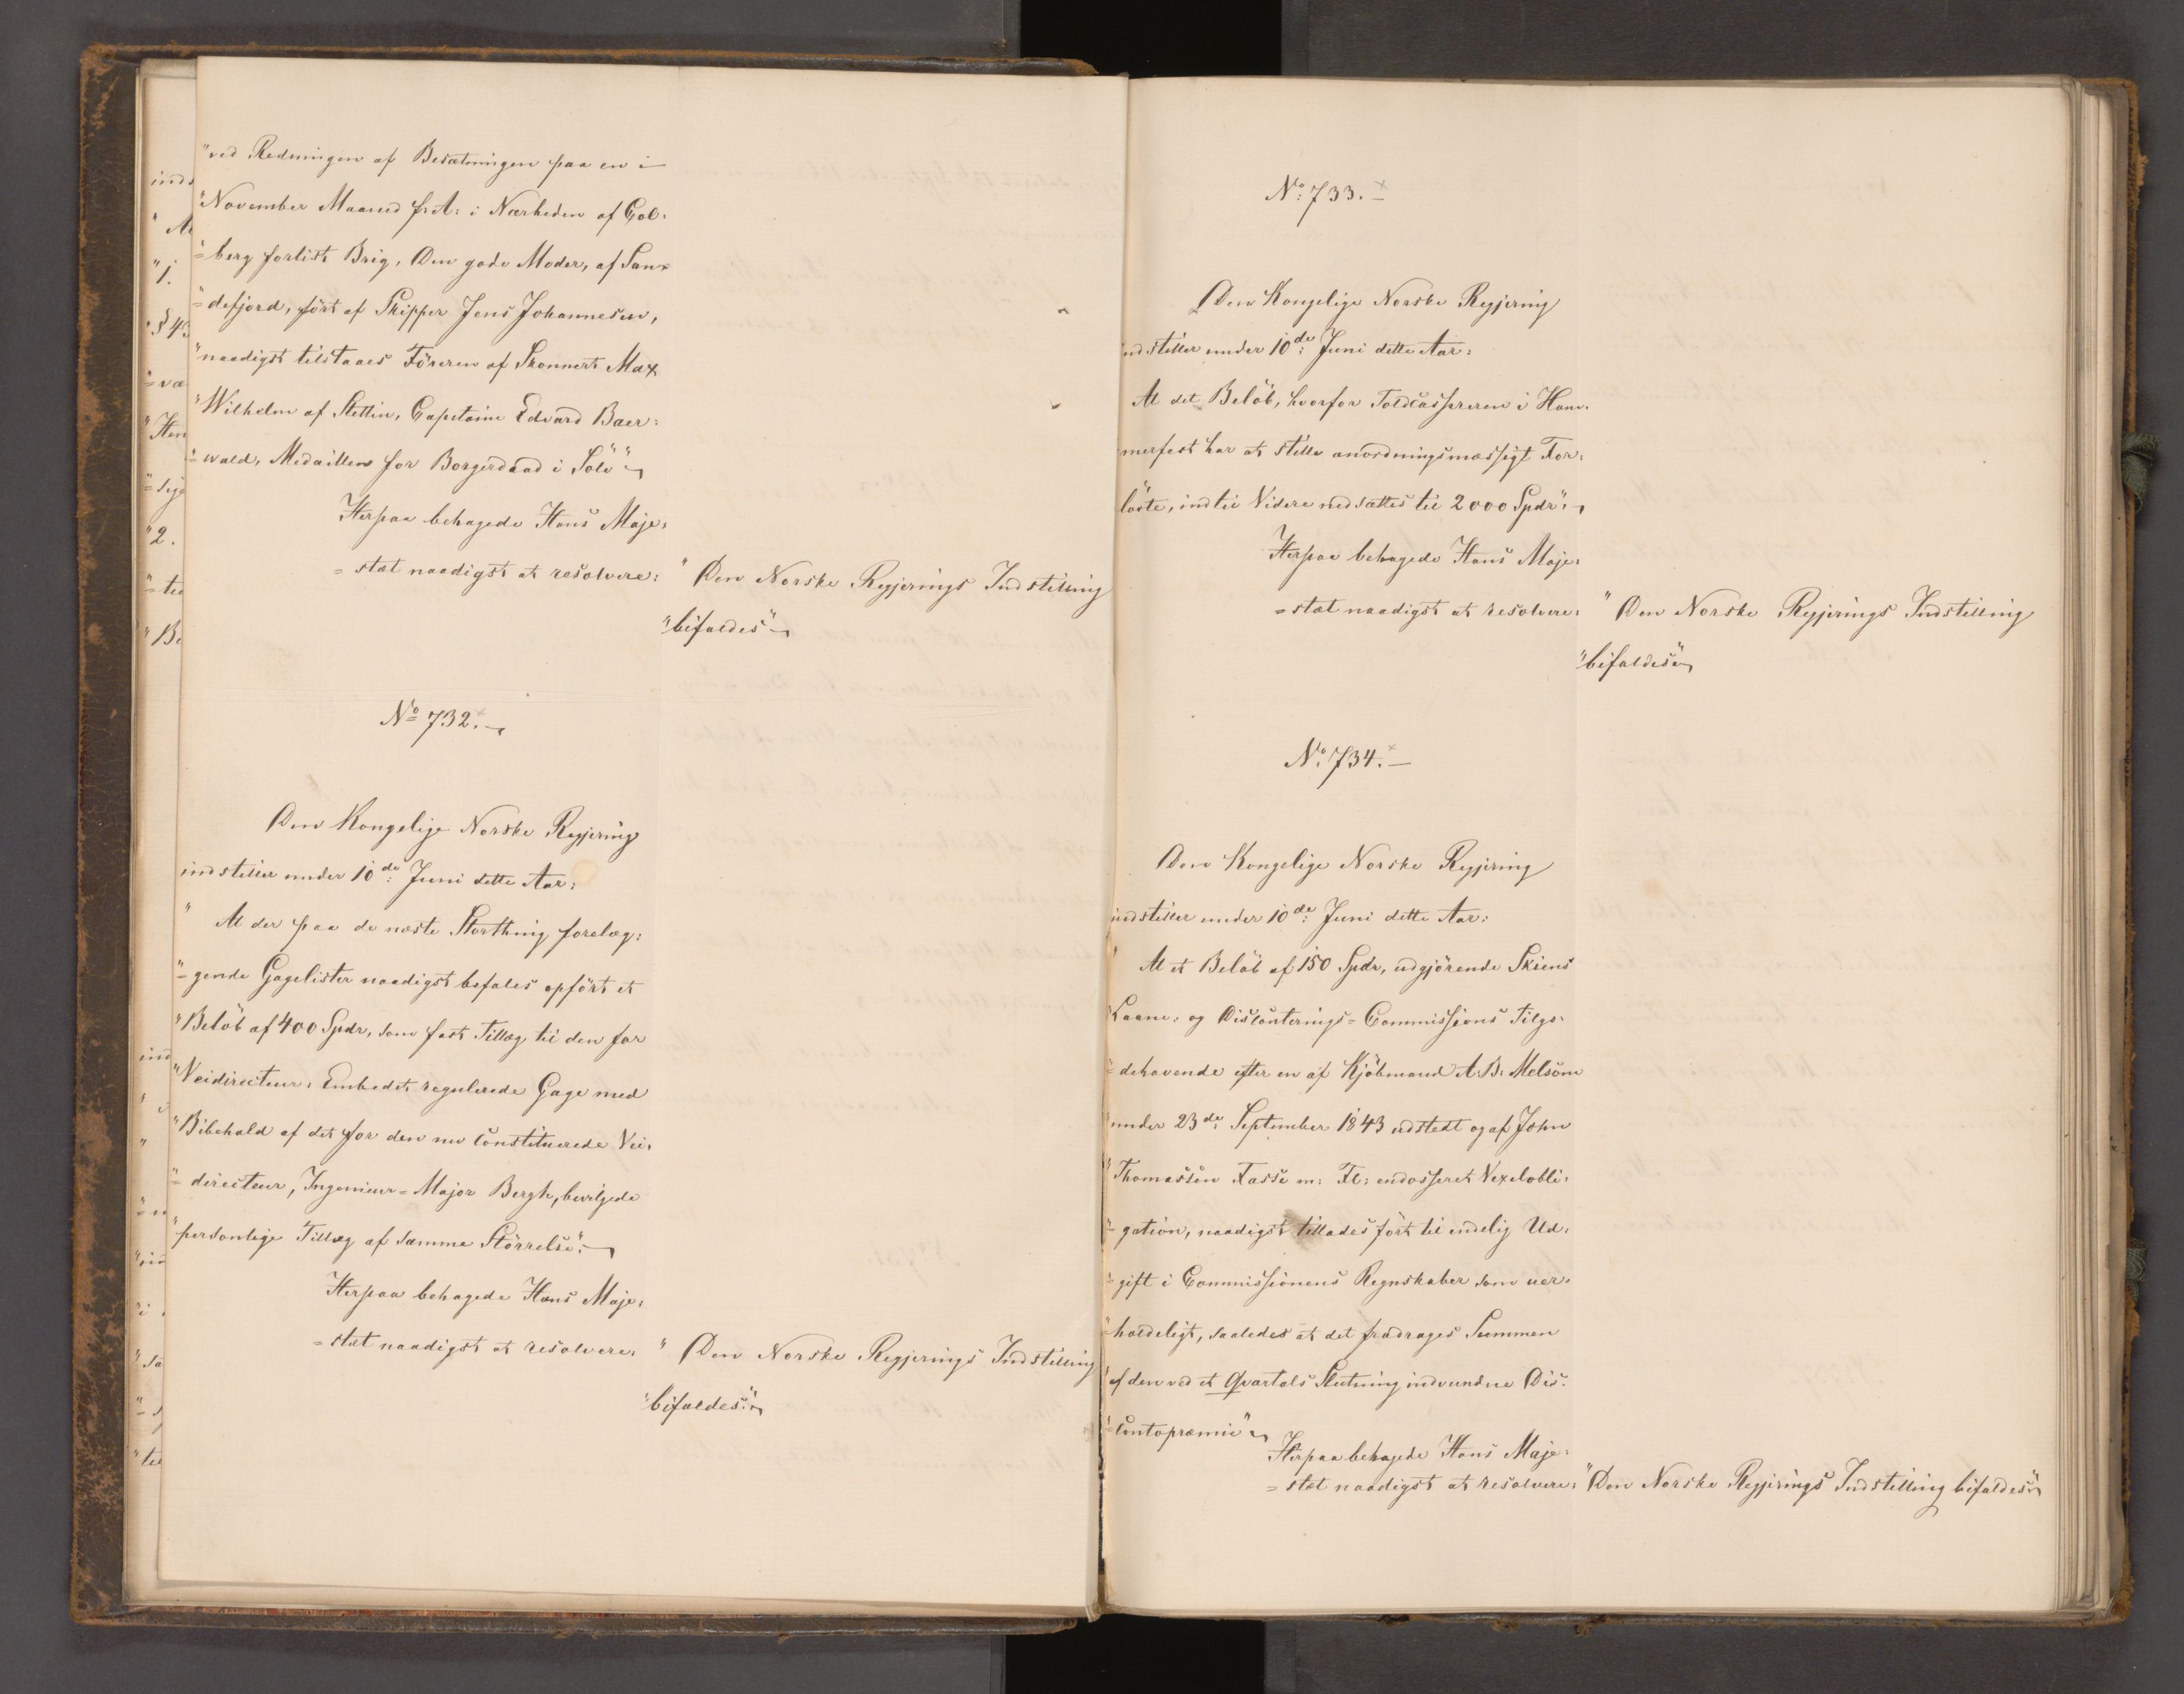 "ved Redningen af Besætningen paa en i
"November Maaned f: A: i Nærheden af Col:
"=berg forlist Brig, Den gode Moder, af San=
"=defjord, ført af Skipper Jens Johannesen,
"naadigst tilstaaes Føreren af Skonnert Max
"Wilhelm af Stettin, Capitaine Edvard Baer:
"=wald, Medaillen for Borgerdaad i Sølv"
Herpaa behagede Hans Maje:
=stæt naadigst at resolvere:
"Den Norske Regjerings Indstilling
"bifaldes"
No 732.
Den Kongelige Norske Regjering
indstiller under 10de Juni dette Aar:
" At der paa de næste Storthing forelæg:
"=gende Gagelister naadigst befales opført et
"Beløb af 400 Spdr, som fast Tillæg til den for
"Veidirecteur-Embedet regulerede Gage med
"Bibehold af det for den nu constituerede Vei:
"=directeur, Ingenieur=Major Bergh, bevilgede
"personlige Tillæg af samme Størrelse".
Herpaa behagede Hans Maje:
=stæt naadigst at resolvere:
"Den Norske Regjerings Indstilling
"bifaldes".
No: 733.
Den Kongelige Norske Regjering
indstiller under 10de: Juni dette Aar:
At det Beløb, hvorfor Toldcassereren i Ham:
merfest har at stille anordningsmæssigt For:
løvte, indtil Videre nedsættes til 2000 Spdr".
Herpaa behagede Hans Maje:
=stæt naadigst at resolvere:
"Den Norske Regjerings Indstilling
"bifaldes"
No: 734.
Den Kongelige Norske Regjering
indstiller under 10de: Juni dette Aar:
" At et Beløb af 150 Spdr, udgjørende Skiens
"Laane- og Disconterings=Commissions Tilgo:
"=dehavende efter en af Kjøbmand A. B. Melsom
"under 23de: September 1843 udstedt og af John
"Thomassen Fasse m: Fl: endosseret Vexelobli:
"=gation, naadigst tillades ført til endelig Ud:
"=gift i Commissionens Regnskaber som uer:
"=holdeligt, saaledes at det fradrages Summen
"af den ved et Qvartals Slutning indvundne Dis:
"=contopræmie"
Herpaa behagede Hans Maje:
=stæt naadigst at resolvere: "Den Norske Regjerings Indstilling bifaldes"